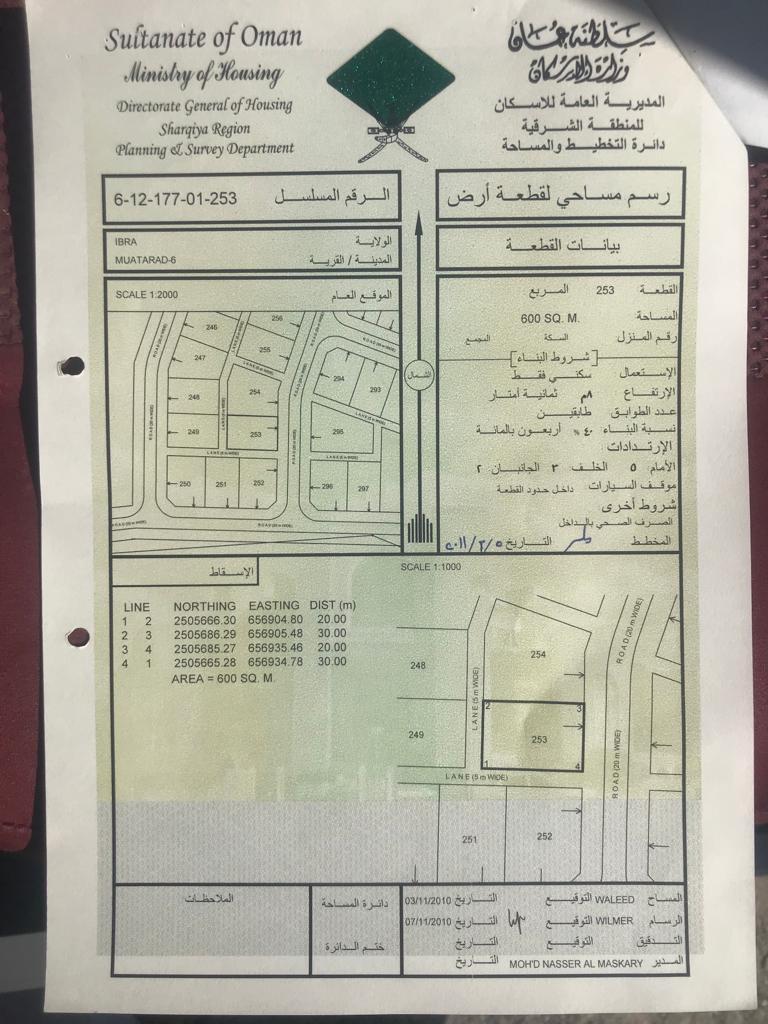 Sultanate of Oman
Ministry of Housing
Directorate General of Housing
Sharqiya Region
Planning & Survey Department
سلطنة عمان
وزارة الإسكان
المديرية العامة للاسكان
للمنطقة الشرقية
دائرة التخطيط والمساحة
6-12-177-01-253 الرقم المسلسل
رسم مساحي لقطعة أرض
IBRA الولاية
MUATARAD-6 المدينة / القرية
بيانات القطعة
SCALE 1:2000 الموقع العام
246
256
247
255
248
254
249
253
250
251
252
294
293
295
296
297
ROAD (20 m WIDE)
ROAD (20 m WIDE)
ROAD (20 m WIDE)
ROAD (20 m WIDE)
ROAD (20 m WIDE)
LANE (5 m WIDE)
LANE (5 m WIDE)
LANE (5 m WIDE)
LANE (5 m WIDE)
LANE (5 m WIDE)
الشمال
القطعة 253 المربع
المساحة 600 SQ. M.
رقم المنزل السكة المجمع
شروط البناء
الإستعمال سكني فقط
الإرتفاع ٨م ثمانية أمتار
عدد الطوابق طابقين
نسبة البناء ٤٠ % أربعون بالمائة
الإرتدادات
الأمام ٥ الخلف ٣ الجانبان ٢
موقف السيارات داخل حدود القطعة
شروط أخرى
الصرف الصحي بالداخل
المخطط التاريخ ٢٠١١/٢/٥
الإسقاط
SCALE 1:1000
LINE NORTHING EASTING DIST (m)
1 2 2505666.30 656904.80 20.00
2 3 2505686.29 656905.48 30.00
3 4 2505685.27 656935.46 20.00
4 1 2505665.28 656934.78 30.00
AREA = 600 SQ. M.
248
254
249
253
251
252
2
3
1
4
LANE (5 m WIDE)
LANE (5 m WIDE)
ROAD (20 m WIDE)
ROAD (20 m WIDE)
الملاحظات
دائرة المساحة
ختم الدائرة
المساح WALEED التوقيع التاريخ 03/11/2010
الرسام WILMER التوقيع التاريخ 07/11/2010
التدقيق التوقيع التاريخ
المدير MOH'D NASSER AL MASKARY التاريخ